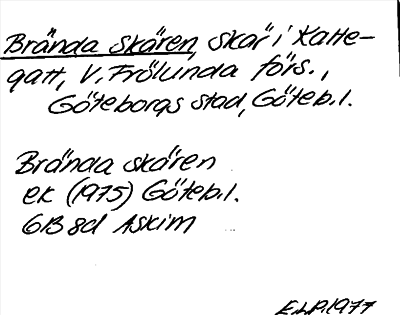 Brända skären, skär i Katte-
gatt, V. Frölunda förs.,
Göteborgs stad, Göteb. l.
Brända skären
ek (1975) Göteb. l.
6B 8d Askim
E.L.P. 1977